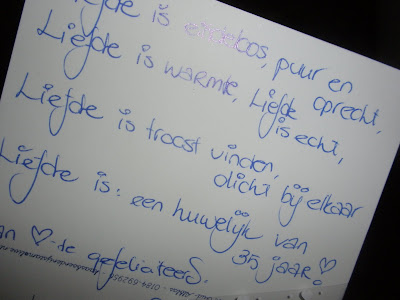 Liefde is eindeloos, puur en oprecht,
Liefde is warmte, Liefde is echt,
Liefde is troost vinden,
dicht bij elkaar
Liefde is: een huwelijk van
35 jaar!
♡-de gefeliciteerd.